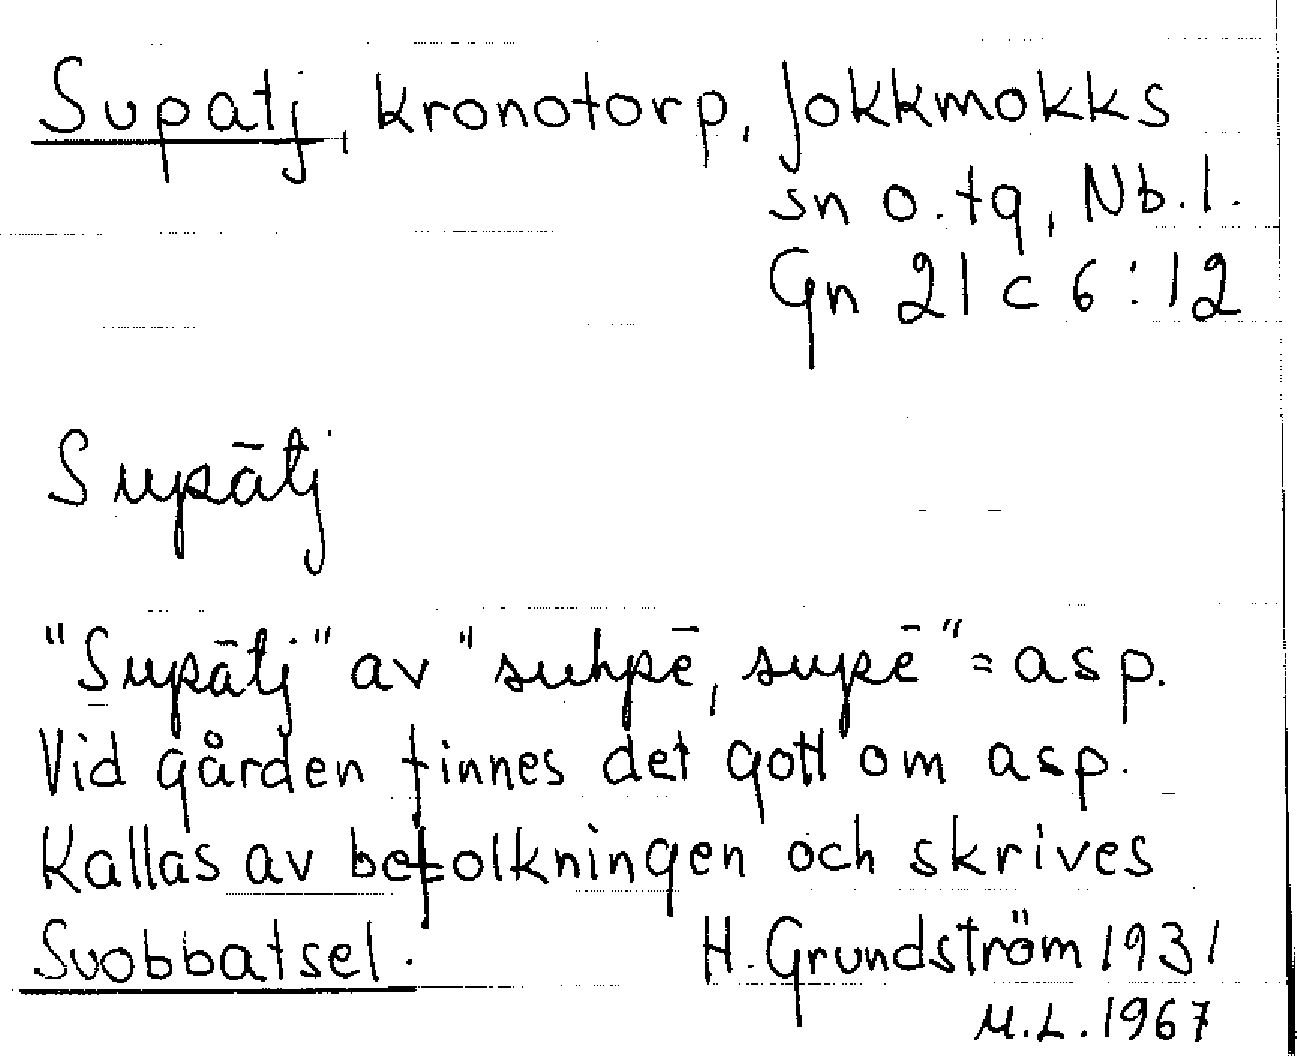 Supatj, kronotorp, Jokkmokks
sn o. tg, Nb. l.
Gn 21 c 6:12
Supātj
"Supātj" av "suhpē, supē" = asp.
Vid gården finnes det gott om asp.
Kallas av befolkningen och skrives
Suobbatsel.
H. Grundström 1931
M.L. 1967